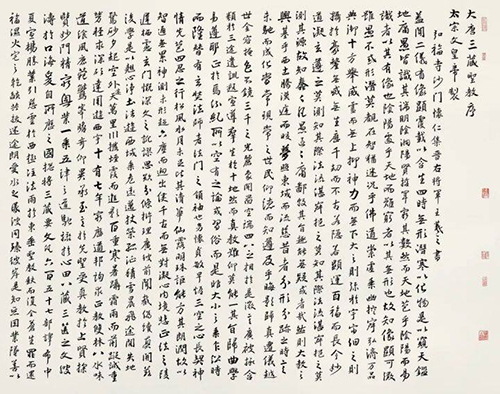 大唐三藏聖教序
弘福寺沙門懷仁集晉右將軍王羲之書
太宗文皇帝製
蓋聞二儀有像顯覆載以含生四時無形潛寒暑以化物是以窺天鑑
地庸愚皆識其端明陰洞陽賢哲罕窮其數然而天地苞乎陰陽而易
識者以其有像也陰陽處乎天地而難窮者以其無形也故知像顯可徵
雖愚不惑形潛莫覩在智猶迷況乎佛道崇虛乘幽控寂弘濟萬品
典御十方舉威靈而無上抑神力而無下大之則彌於宇宙細之則
攝於毫釐無滅無生歷千劫而不古若隱若顯運百福而長今妙
道凝玄遵之莫知其際法流湛寂挹之莫
測其源故知蠢蠢凡愚區區庸鄙投其旨趣能無疑惑者哉然則大教之
興基乎西土騰漢庭而皎夢照東域而流慈昔者分形分跡之時言
未馳而成化當常現常之世民仰德而知遵及乎晦影歸真遷儀越
世金容掩色不鏡三千之光麗象開圖空端四八之相於是微言廣被拯含
類於三途遺訓遐宣導群生於十地然而真教難仰莫能一其旨歸曲學
易遵邪正於焉紛糺所以空有之論或習俗而是非大小之乘乍沿時
而隆替有玄奘法師者法門之領袖也幼懷貞敏早悟三空之心長契神
情先苞四忍之行松風水月未足比其清華仙露明珠詎能方其朗潤故以
智通無累神測未形超六塵而迥出隻千古而無對凝心內境悲正法之陵
遲栖慮玄門慨深文之訛謬思欲分條析理廣彼前聞截偽續真開茲
後學是以翹心淨土往遊西域乘危遠邁杖策孤征積雪晨飛途間失地
驚砂夕起空外迷天萬里山川撥煙霞而進影百重寒暑躡霜雨而前蹤誠重
勞輕求深願達周遊西宇十有七年窮歷道邦詢求正教雙林八水味
道飡風鹿菀鷲峯瞻奇仰異承至言於先聖受真教於上賢探
賾妙門精窮奧業一乘五律之道馳驟於心田八藏三篋之文波
濤於口海爰自所歷之國總將三藏要文凡六百五十七部譯布中
夏宣揚勝業引慈雲於西極注法雨於東垂聖教缺而復全蒼生罪而還
福濕火宅之乾燄共拔迷途朗愛水之昏波同臻彼岸是知惡因業墜善以